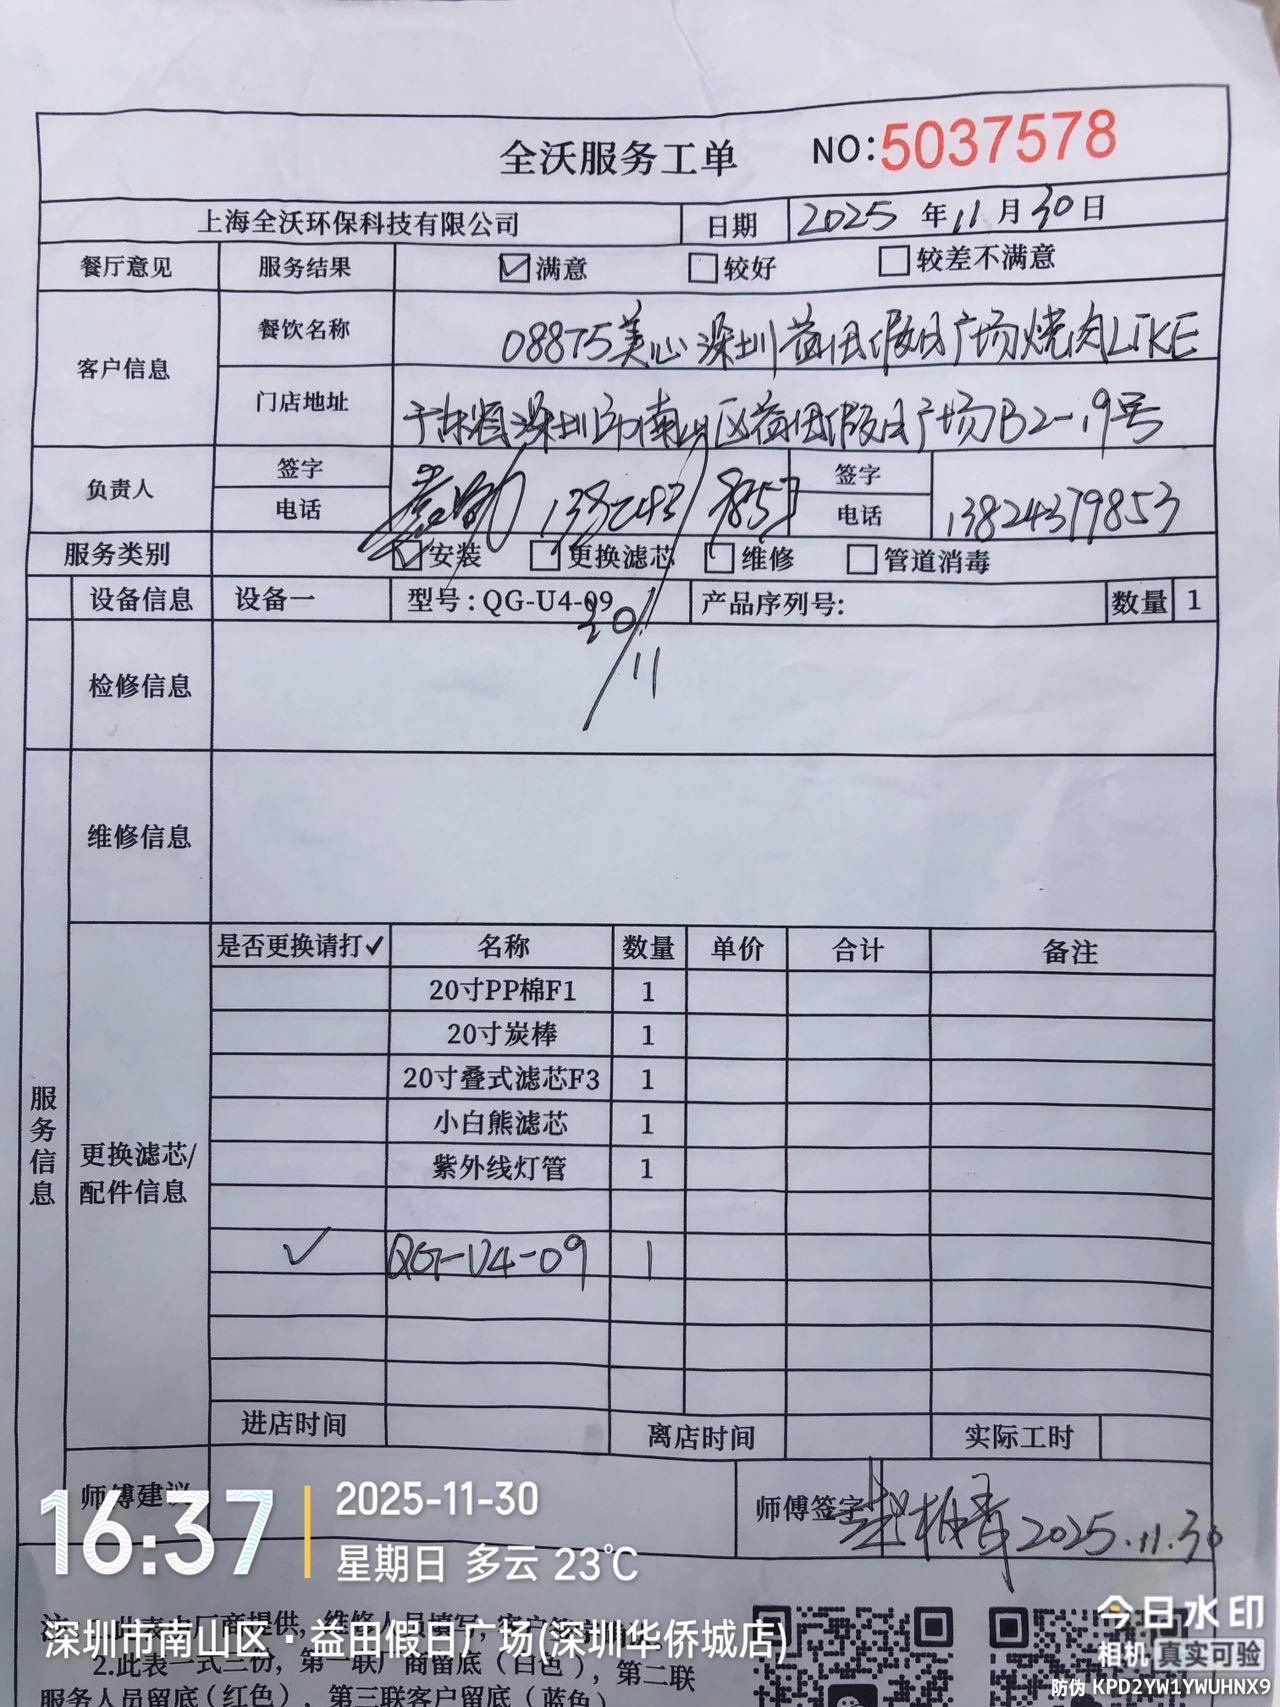 全沃服务工单 NO:5037578
上海全沃环保科技有限公司 日期 2025 年 11 月 30 日
餐厅意见 服务结果 ☑满意 □较好 □较差不满意
客户信息 餐饮名称 08875美心深圳益田假日广场烧肉LIKE
门店地址 深圳市南山区益田假日广场B2-19号
负责人 签字 签字
电话 13824379853 电话 13824379853
服务类别 ☑安装 □更换滤芯 □维修 □管道消毒
设备信息 设备一 型号:QG-U4-09 产品序列号: 数量 1
30/11
检修信息
维修信息
服务信息
更换滤芯/
配件信息
是否更换请打✓ 名称 数量 单价 合计 备注
20寸PP棉F1 1
20寸炭棒 1
20寸叠式滤芯F3 1
小白熊滤芯 1
紫外线灯管 1
✓ QG-U4-09 1
进店时间 离店时间 实际工时
师傅建议 师傅签字 2025.11.30
16:37 2025-11-30
星期日 多云 23℃
注:1.此表由厂商提供,维修人员填写,客户
深圳市南山区·益田假日广场(深圳华侨城店)
2.此表一式三份,第一联厂商留底(白色),第二联
服务人员留底(红色),第三联客户留底(蓝色)
今日水印
相机 真实可验
防伪 KPD2YW1YWUHNX9